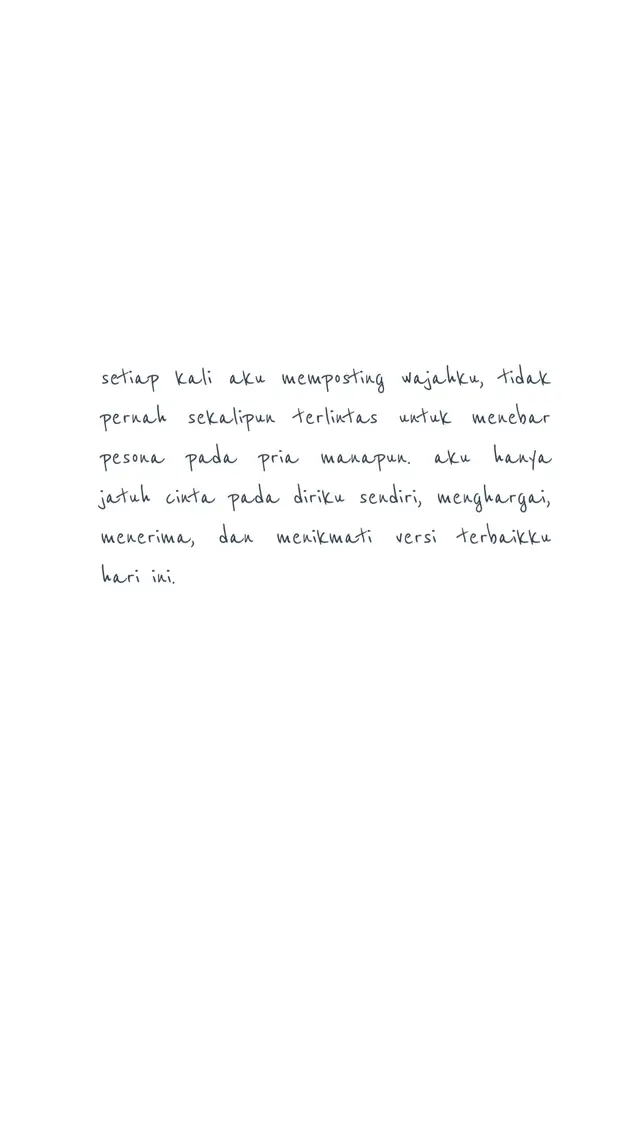 setiap kali aku memposting wajahku, tidak
pernah sekalipun terlintas untuk menebar
pesona pada pria manapun. aku hanya
jatuh cinta pada diriku sendiri, menghargai,
menerima, dan menikmati versi terbaikku
hari ini.